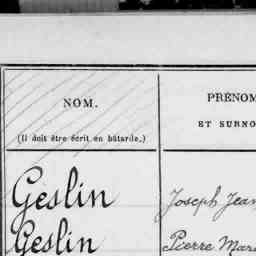 NOM.
(Il doit être écrit en bâtarde.)
PRÉNOM
ET SURNO
Geslin Joseph Jean
Geslin Pierre Mar